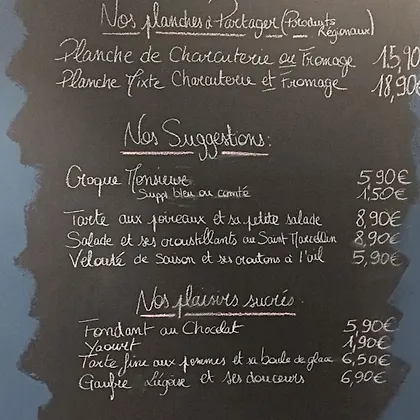 Nos planches à Partager (Produits Régionaux)
Planche de Charcuterie ou Fromage 15,90
Planche Mixte Charcuterie et Fromage 18,90€
Nos Suggestions:
Croque Monsieur 5,90€
Suppl bleu ou comté 1,50€
Tarte aux poireaux et sa petite salade 8,90€
Salade et ses croustillants au Saint Marcellin 8,90€
Velouté de Saison et ses croutons à l'ail 5,90€
Nos plaisirs sucrés
Fondant au Chocolat 5,90€
Yaourt 1,90€
Tarte fine aux pommes et sa boule de glace 6,50€
Gaufre Liégeoise et ses douceurs 6,90€